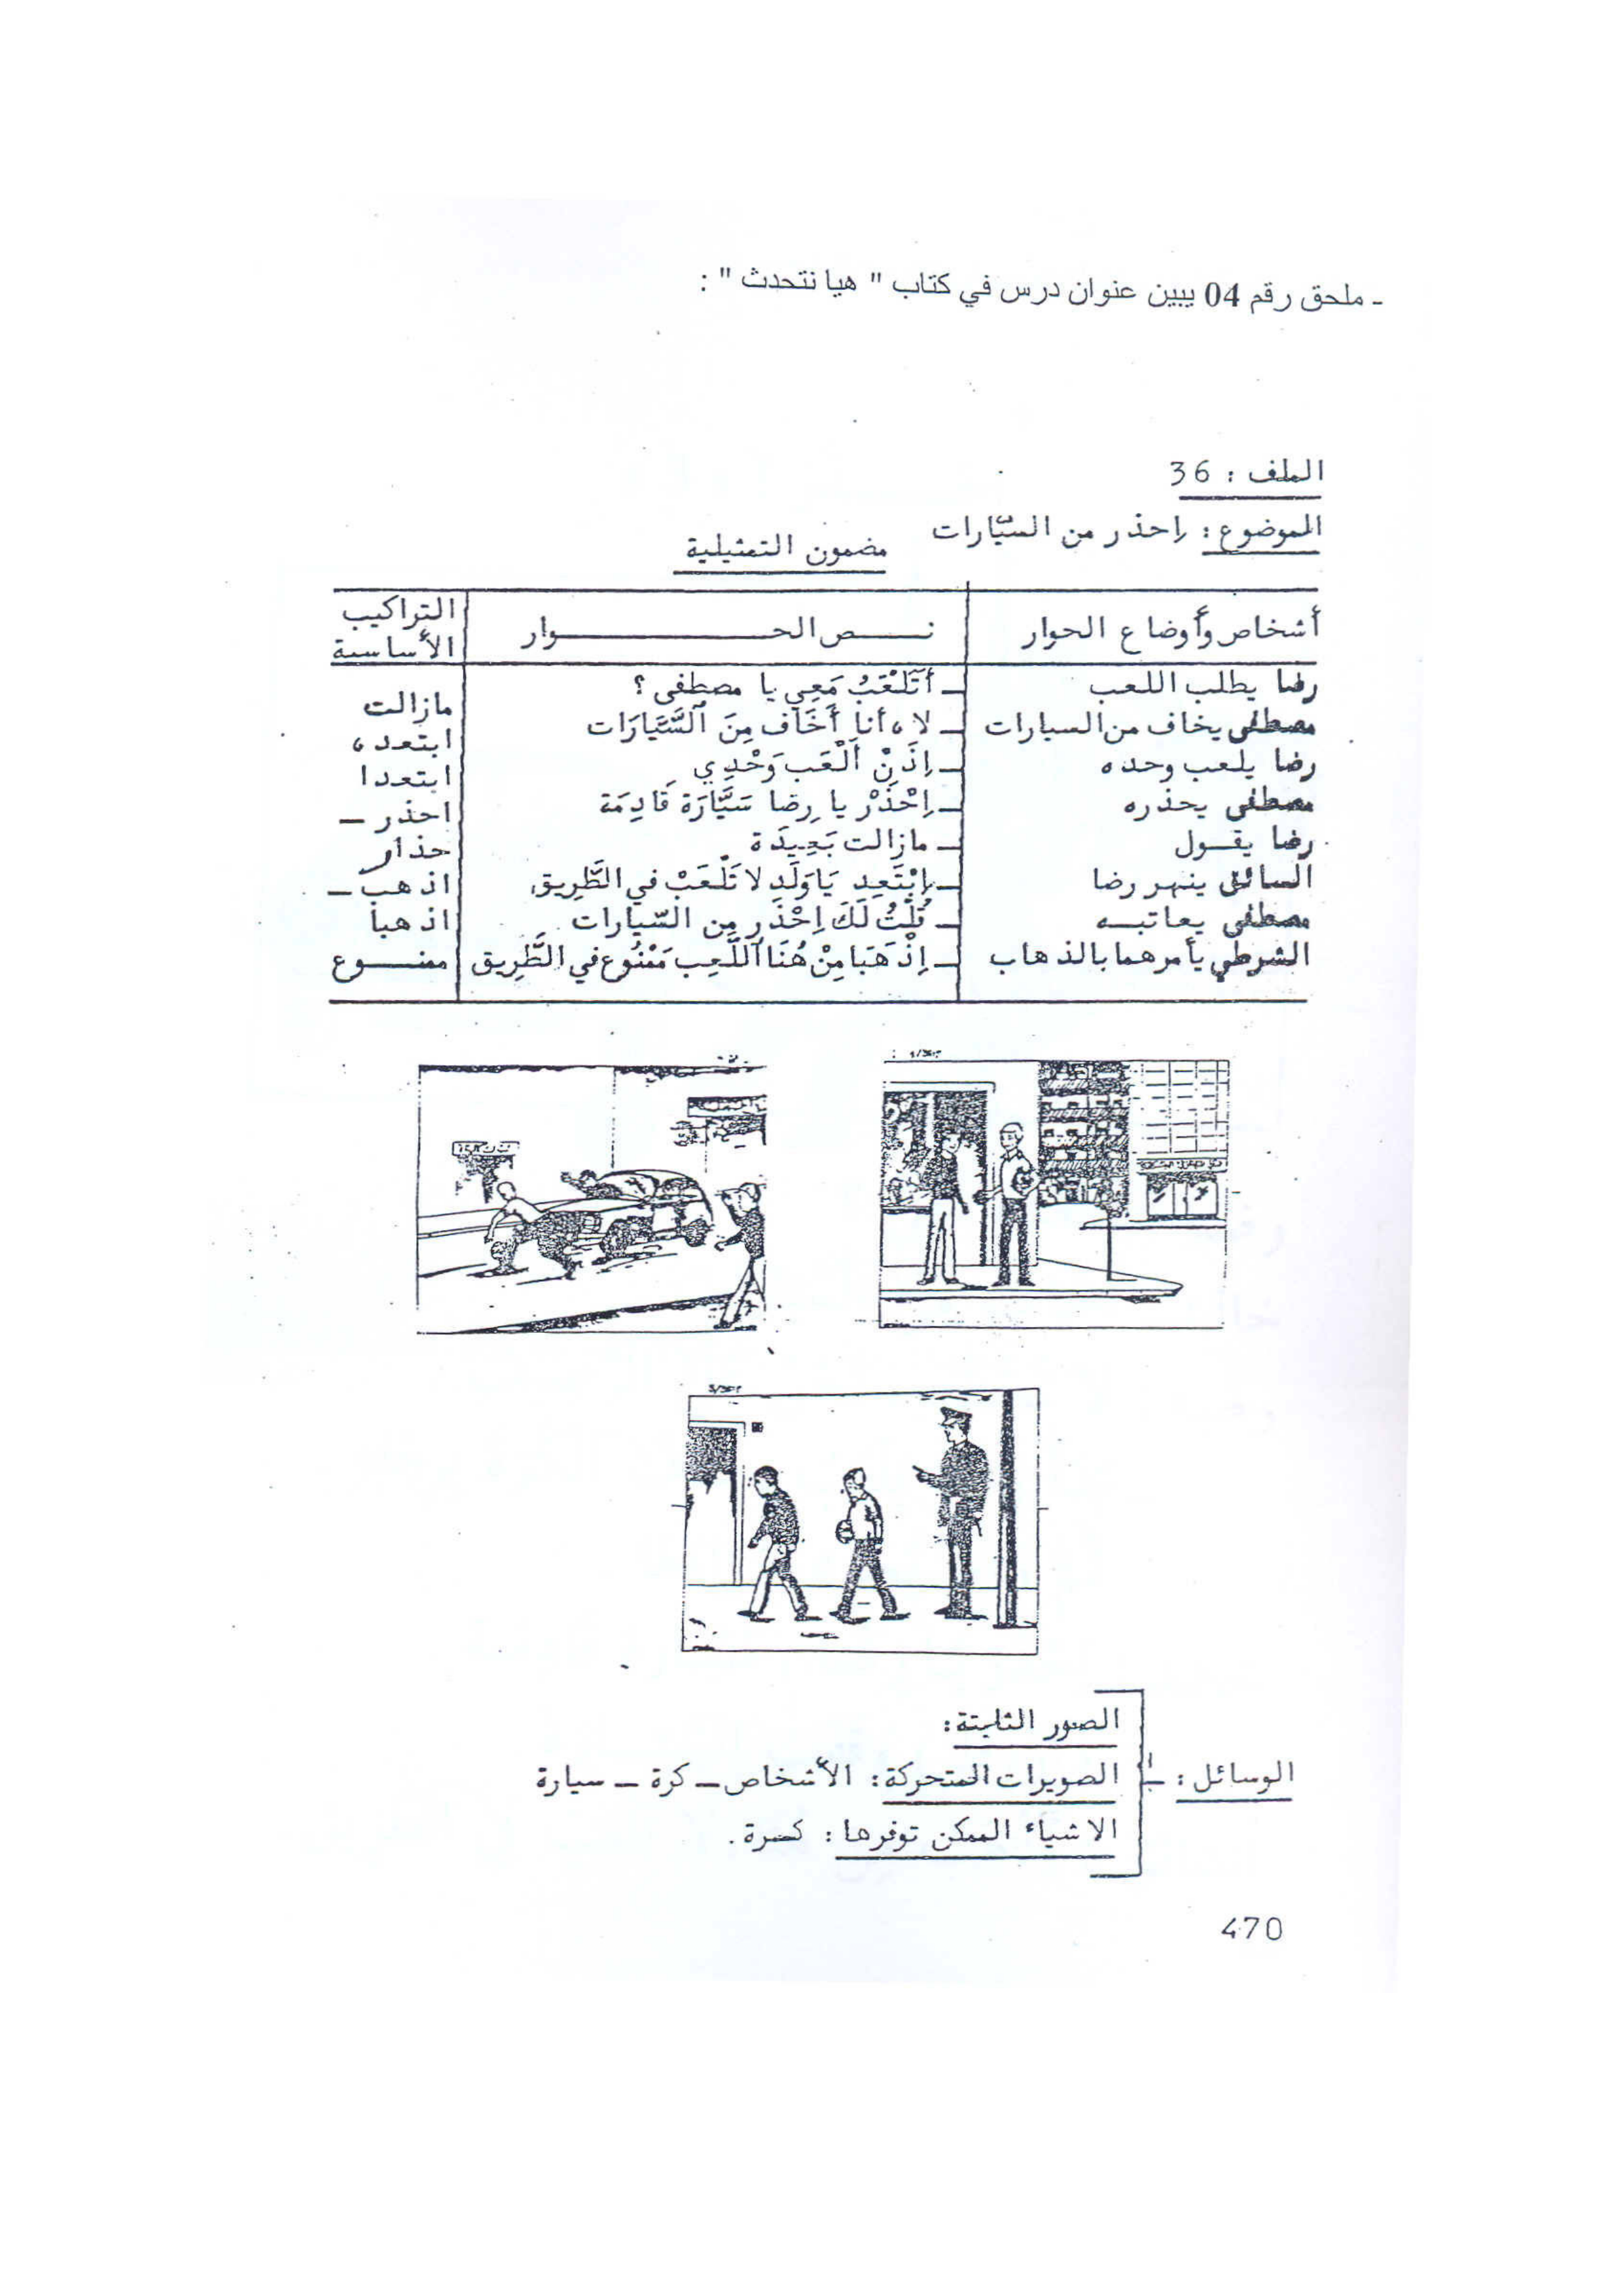 ـ ملحق رقم 04 يبين عنوان درس في كتاب " هيا نتحدث " :
الملف : 36
الموضوع : إحذر من السيّارات
مضمون التمثيلية
أشخاص وأوضاع الحوار نــص الحــــــوار التراكيب الأساسية
رضا يطلب اللعب ـ أَتَلْعَبُ مَعِي يا مصطفى ؟
مازالت
مصطفى يخاف من السيارات ـ لا ، أنا أَخَاف مِنَ ٱلسَّيَّارَات
ابتعد ،
رضا يلعب وحده ـ إِذَنْ أَلْعَب وَحْدِي
ابتعدا
مصطفى يحذره ـ إِحْذَرْ يا رِضا سَيَّارَة قَادِمَة
احذر ـ
رضا يقـول ـ مازالت بَعِيدَة
حذار
السائق ينهر رضا ـ إِبْتَعِد يَا وَلَد لا تَلْعَبْ في الطَّرِيق
اذهب ـ
مصطفى يعاتبـه ـ قُلْتُ لَكَ إِحْذَرِ مِن السّيارات
اذهبا
الشرطي يأمرهما بالذهاب ـ إِذْهَبَا مِنْ هُنَا ٱللَّعِب مَمْنُوع في الطَّرِيق
ممنـــوع
الوسائل :
الصور الثابتة :
الصويرات المتحركة : الأشخاص ـ كرة ـ سيارة
الاشياء الممكن توفرها : كـرة .
470